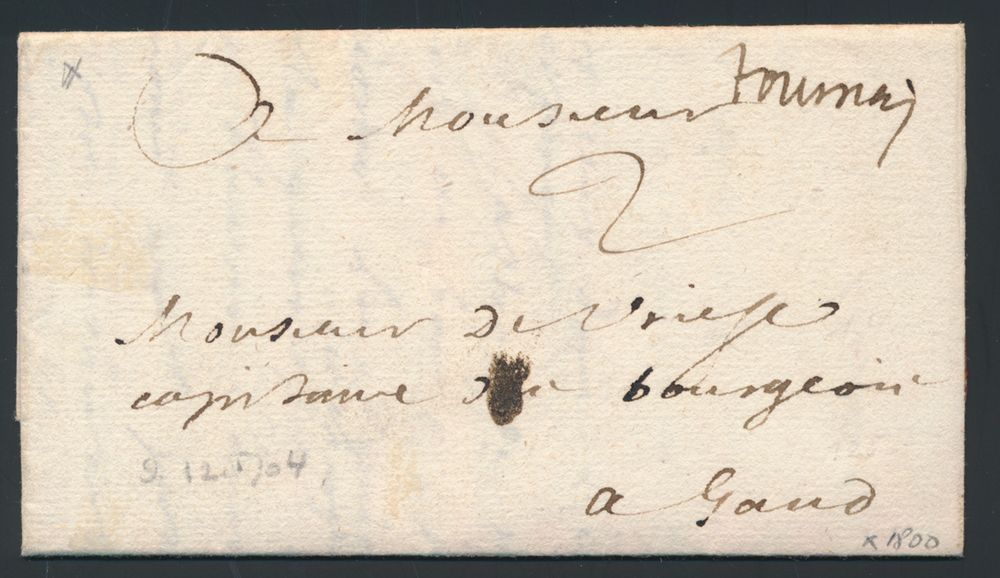 A Monsieur Tournaj
2
Monsieur De Vriese
capitaine de bourgeoie
a Gand
9. 12. 1704
x 1800